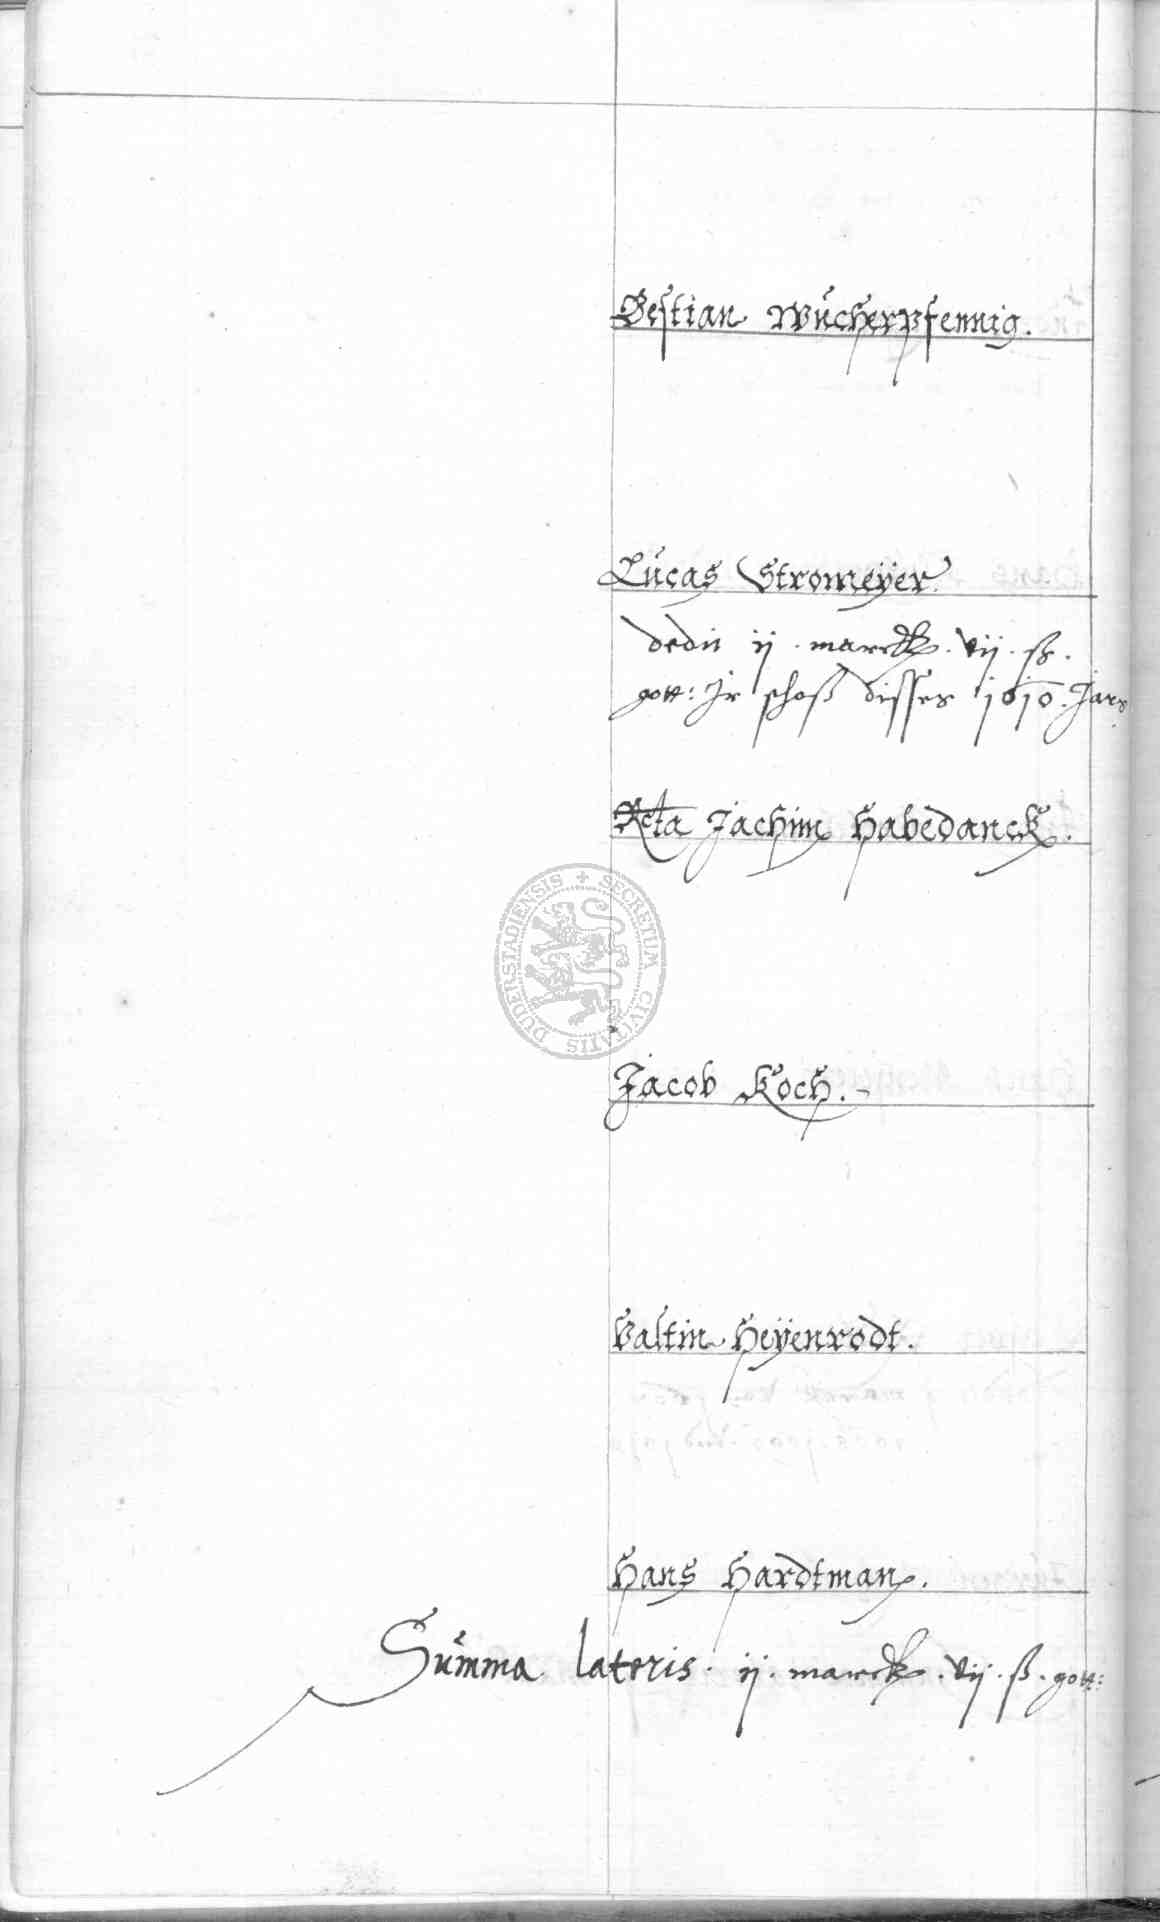 Bestian Wücherpfennig.
Lücas Stromeÿer.
dedit ij. marck. vij. ß.
gott: Jr schoß disses 1610. Jars
Rcta Jachim Habedanck.
SECRETUM CIVITATIS DUDERSTADIENSIS
Jacob Koch.
Valtin Heÿenrodt.
Hans Hardtman.
Summa lateris. ij. marck. vij. ß. gott: